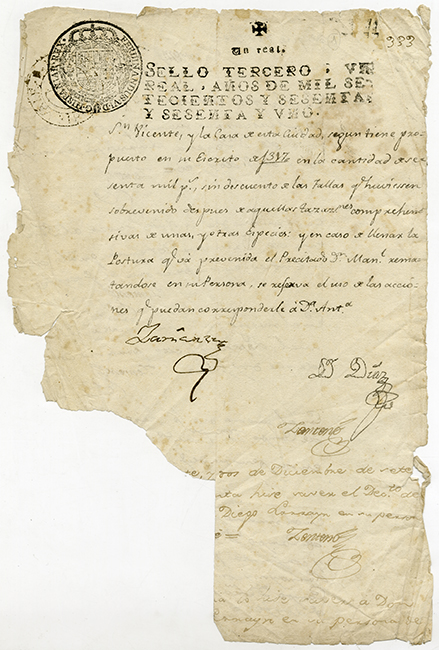 333
Un real.
SELLO TERCERO, UN
REAL, AÑOS DE MIL SE-
TECIENTOS Y SESENTA,
Y SESENTA Y UNO.
Sn Vicente, y la Casa de esta Ciudad, segun tiene pro-
puesto en su Escrito de f317 en la cantidad de se-
senta mil ps, sin descuento de las fallas q huviessen
sobrevenido despues de aquellas tazazes comprehen-
sivas de unas, y otras especies: y en caso de llenar la
Postura q vá prevenida el Precitado Dn Manl rema-
tandose en su Persona, se reserva el uso de las accio-
nes q puedan corresponderle á Da Anta
D Diaz
Zenteno
dos de Diciembre de sete
ta hise saver el Deto de
Diego en su perso
Zenteno
saver a Don
en su persona de